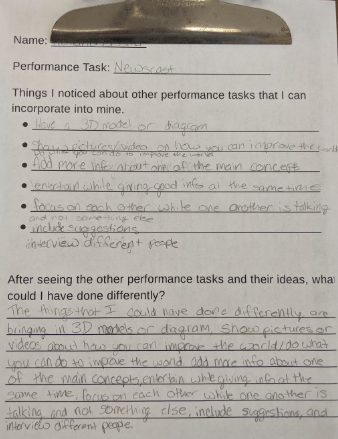 Name:
Performance Task: Newscast
Things I noticed about other performance tasks that I can
incorporate into mine.
• Have a 3D model or diagram
• Show pictures/video on how you can improve the world
do what you can do to improve the world
• add more info about one of the main concepts
• entertain while giving good info at the same time
• focus on each other while one another is talking
and not something else
• include suggestions
interview different people
After seeing the other performance tasks and their ideas, what
could I have done differently?
The things that I could have done differently are
bringing in 3D models or diagram, show pictures or
videos about how you can improve the world/do what
you can do to improve the world add more info about one
of the main concepts, entertain while giving info at the
same time, focus on each other while one another is
talking and not something else, include suggestions, and
interview different people